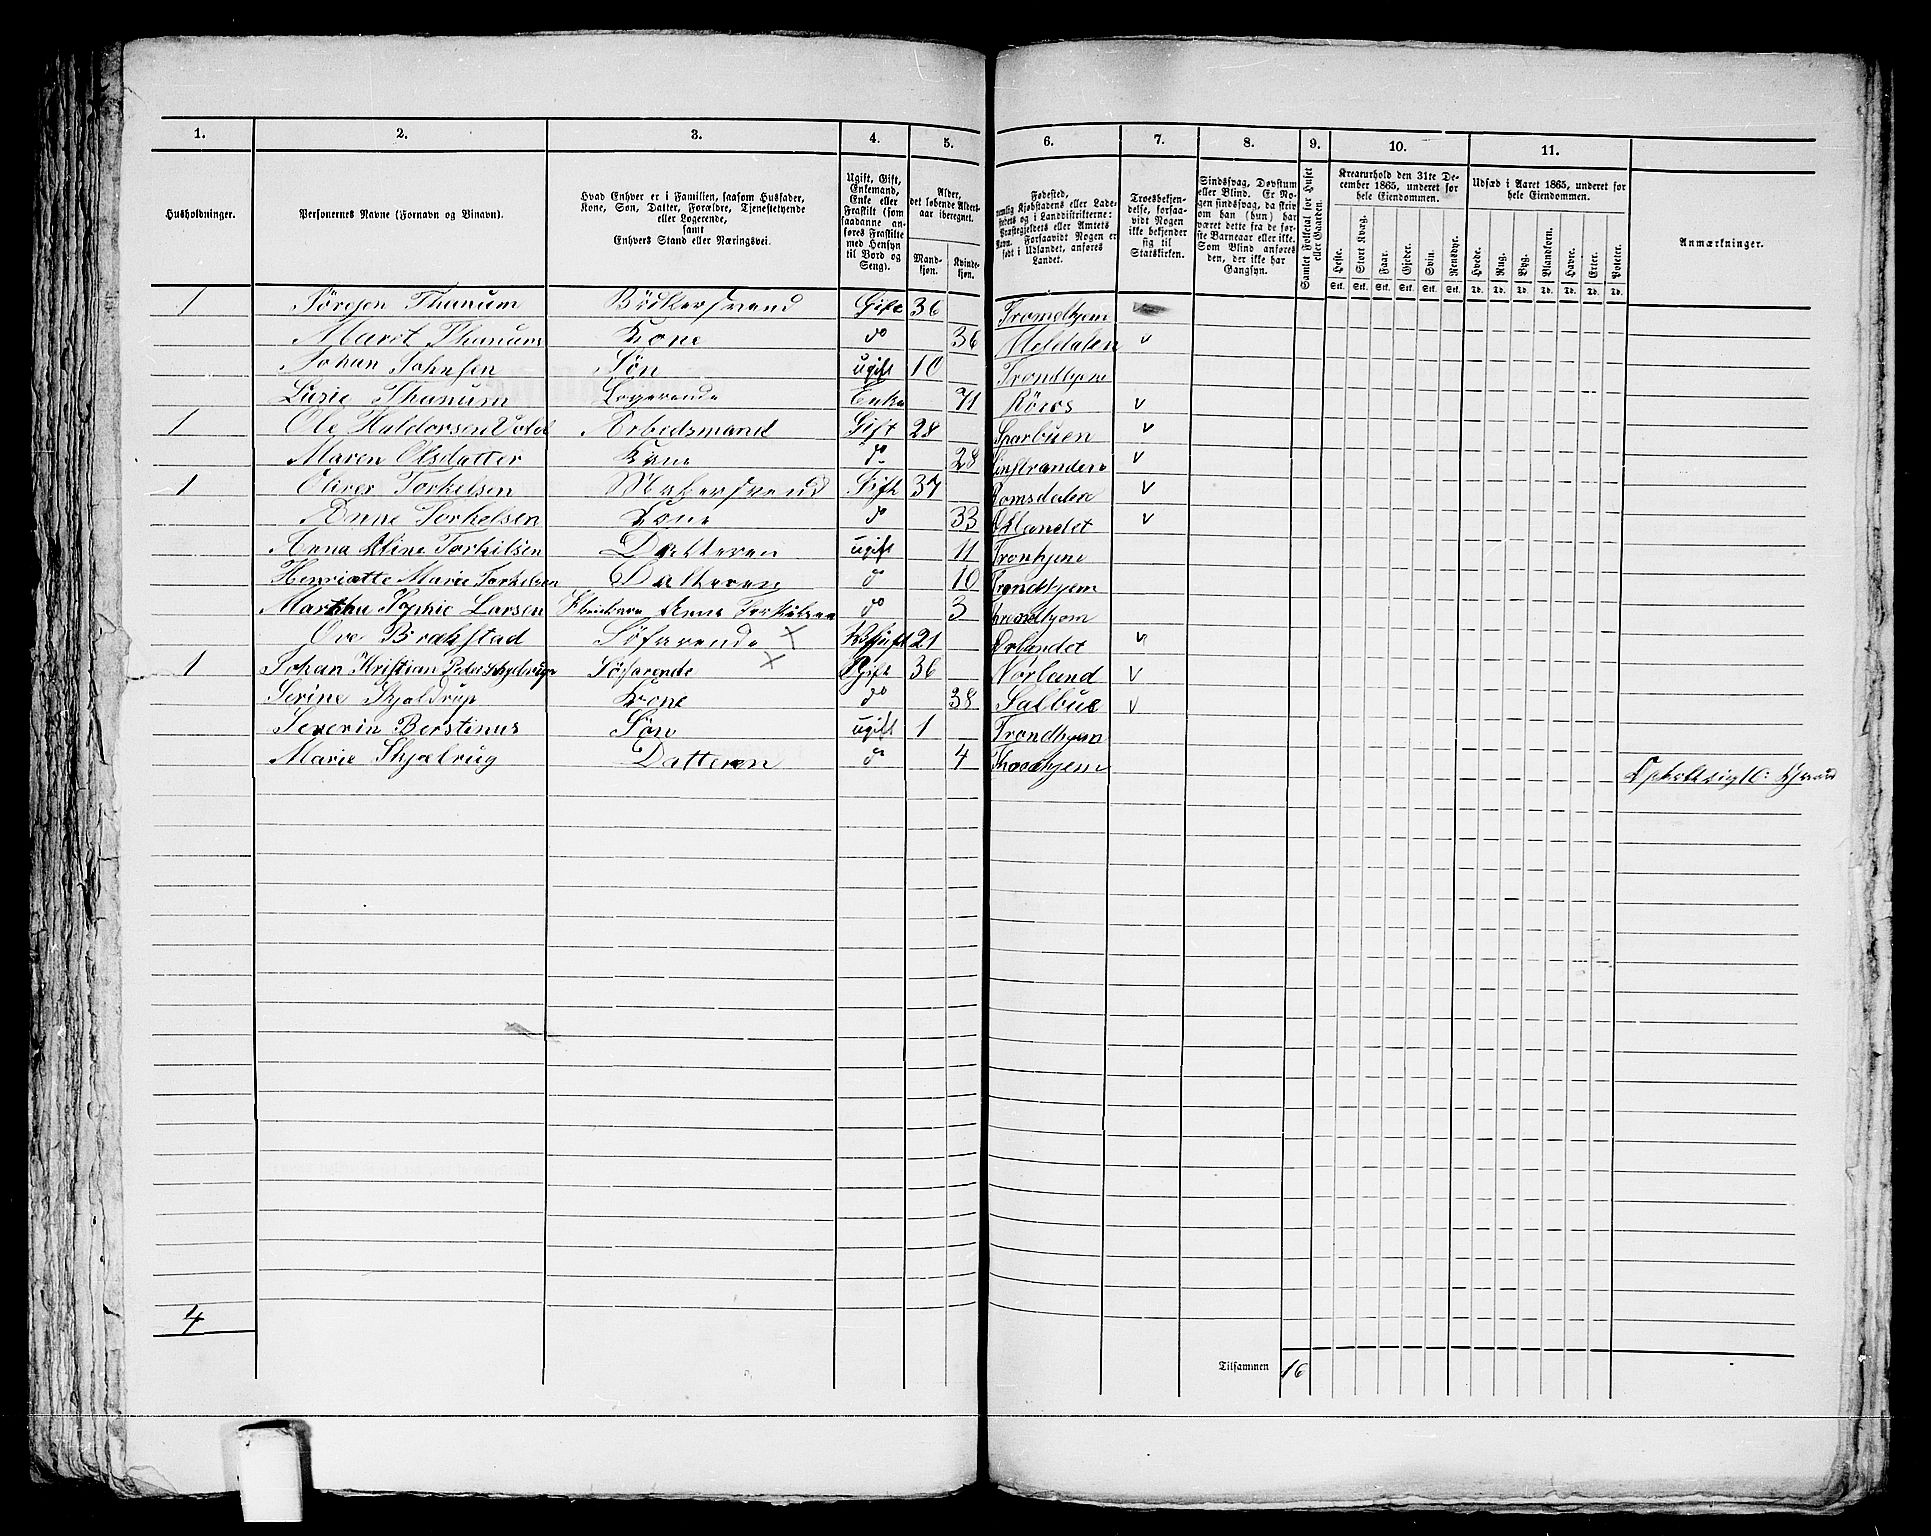 1. 2. 3. 4. 5. 6. 7. 8. 9. 10. 11.
Husholdninger.
Personernes Navne (Fornavn og Binavn).
Hvad Enhver er i Familien, saasom Husfader,
Kone, Søn, Datter, Forældre, Tjenestetyende
eller Logerende,
samt
Enhvers Stand eller Næringsvei.
Ugift, Gift,
Enkemand,
Enke eller
Fraskilt (som
saadanne an-
føres Fraskilte
med Hensyn
til Bord og
Seng).
Alder,
det løbende Alders-
aar iberegnet.
Mand-
kjøn.
Kvinde-
kjøn.
Fødested,
nemlig Kjøbstadens eller Lade-
stedets og i Landdistrikterne:
Præstegjeldets eller Amtets
Navn. Forsaavidt Nogen er
født i Udlandet, anføres
Landet.
Troesbekjen-
delse, forsaa-
vidt Nogen
ikke bekjender
sig til
Statskirken.
Sindssvag, Døvstum
eller Blind. Er No-
gen sindssvag, da skrives
om han (hun) har
været dette fra de før-
ste Barneaar eller ikke.
Som Blind anføres
den, der ikke har
Gangsyn.
Samlet Folketal for Huset
eller Gaarden.
Kreaturhold den 31te De-
cember 1865, underet for
hele Eiendommen.
Heste. Stort Kvæg. Faar. Gjeder. Svin. Rensdyr.
Stk. Stk. Stk. Stk. Stk. Stk.
Udsæd i Aaret 1865, underet for
hele Eiendommen.
Hvede. Rug. Byg. Blandkorn. Havre. Erter. Poteter.
Td. Td. Td. Td. Td. Td. Td.
Anmærkninger.
1 Jörgen Thunum Bödkersvend Gift 36 Trondhjem
Marit Thunum Kone do 36 Meldalen v
Johan Johnsen Søn ugift 10 Trondhjem
Lusie Thunum Logerende Enke 71 Röros v
1 Ole Haldorsen Vold Arbedsmand Gift 28 Sparbuen v
Maren Olsdatter Kone do 28 v
1 Oliver Torkelsen Gift 37 Romsdalen v
Anne Torkelsen Kone do 33 v
Anna Torkilsen Datteren ugift 11 Tronhjem
Henriatte Marie Torkelsen Datteren do 10 Trondhjem
Martha Sophie Larsen do 3 Trondhjem
Ove Brakstad Söfarende 21 v
1 Johan Kristian Peter Söfarende Gift 36 Nörland v
Serine Skjoldrup Kone do 38 Salbue v
Severin Berstinus Søn ugift 1 Trondhjem
Marie Skjælrug Datteren do 4
4
Tilsammen 16